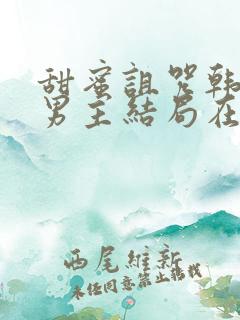 甜蜜詛咒韓
男主結局在
西尾維新
未经同意禁止转载